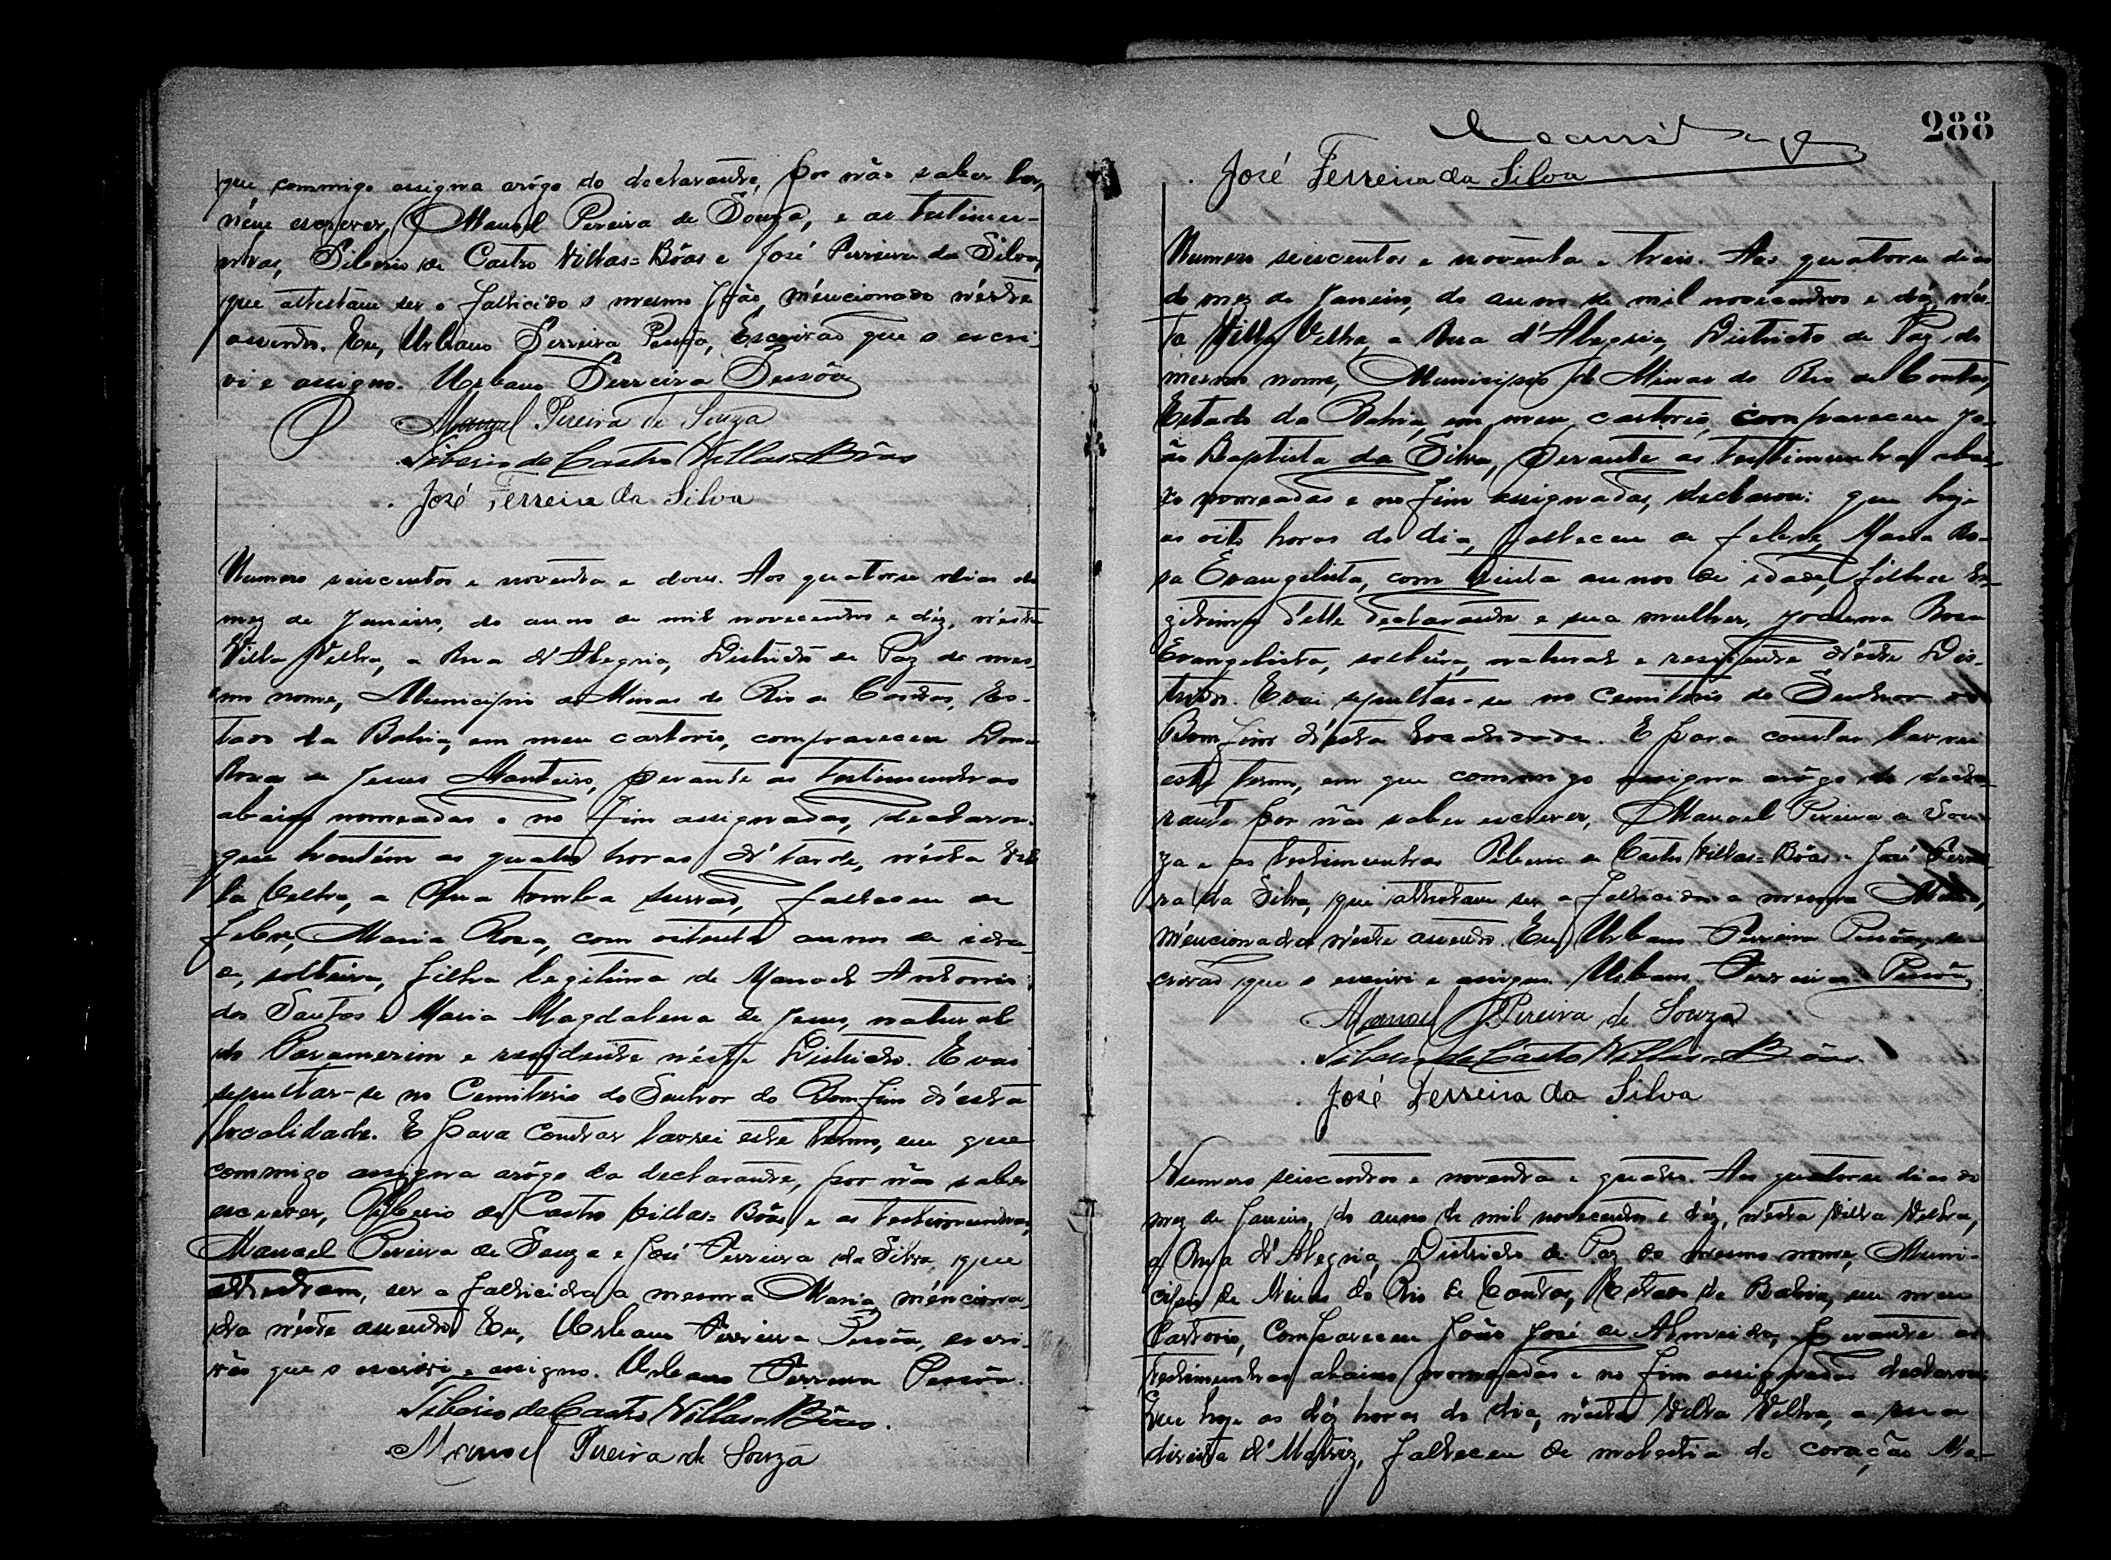 que commigo assigna arôgo do declarante, por não saber ler,
nem escrever, Manoel Pereira de Souza, e as testimu-
nhas, Tiberio de Castro Villas=Bôas e José Ferreira da Silva,
que attestam ser o fallicido o mesmo João, mencionado néste
assento. Eu, Urbano Ferreira Pessôa, Escrivão que o escri-
vi e assigno. Urbano Ferreira Pessôa
Manoel Pereira de Souza
Tiberio de Castro Villas Bôas
José Ferreira da Silva
Numero seiscentos e noventa e dous. Aos quatorse dias do
mez de Janeiro, do anno de mil novecentos e déz, nésta
Villa Velha, a Rua d'Alegria, Districto de Paz do mes-
mo nome, Municipio de Minas do Rio de Contas, Es-
tado da Bahia, em meu cartorio, compareceu Dona
Rosa de Jesus Monteiro, perante as testimunhas
abaixo nomeadas e no fim assignadas, declarou:
que hontém as quatro horas d'tarde, nésta Vil-
la Velha, a Rua tomba surrão, falleceu de
febre, Maria Rosa, com oitenta annos de ida-
de, solteira, filha legitima de Manoel Antonio
dos Santos e Maria Magdalena de Jesus, natural
do Paramerim e residente néste Districto. E vai
sepultar-se no Cemiterio do Senhor do Bom fim d'ésta
localidade. E para constar lavrei este termo, em que
commigo assigna arôgo da declarante, por não saber
escrever, Tiberio de Castro Villas=Bôas, e as testimunhas,
Manoel Pereira de Souza e José Ferreira da Silva, que
attestam, ser a fallicida a mesma Maria, menciona-
da néste assento. Eu, Urbano Ferreira Pessôa, escri-
vão que o escrivi e assigno. Urbano Ferreira Pessôa.
Tiberio de Castro Villas Bôas.
Manoel Pereira de Souza
288
José Ferreira da Silva
Numero seiscentos e noventa e treis. Aos quatorse dias
do mez de Janeiro, do anno de mil novecentos e déz, nés-
ta Villa Velha, a Rua d'Alegria, Districto de Paz do
mesmo nome, Municipio de Minas do Rio de Contas,
Estado da Bahia, em meu cartorio, compareceu Jo-
ão Baptista da Silva, perante as testimunhas abai-
xo nomeadas e no fim assignadas, declarou: que hoje
as oito horas do dia, falleceu de febre, Maria Ro-
sa Evangelista, com annos de idade, filha le-
gitima d'elle declarante e sua mulher, Rosa
Evangelista, solteira, natural e residente d'éste Dis-
tricto. E vai sepultar-se no cemiterio do Senhor do
Bom fim d'ésta localidade. E para constar lavrei
este termo, em que commigo assigna arôgo do decla-
rante por não saber escrever, Manoel Pereira de Sou-
za e as testimunhas Tiberio de Castro Villas=Bôas e José Ferrei-
ra da Silva, que attestam ser a fallicida a mesma Maria,
mencionada néste assento. Eu, Urbano Ferreira Pessôa, es-
crivão que o escrivi e assigno. Urbano Ferreira Pessôa
Manoel Pereira de Souza
Tiberio de Castro Villas Bôas.
José Ferreira da Silva
Numero seiscentos e noventa e quatro. Aos quatorse dias do
mez de Janeiro, do anno de mil novecentos e déz, nésta Villa Velha,
a Rua d'Alegria, Districto de Paz do mesmo nome, Muni-
cipio de Minas do Rio de Contas, Estado da Bahia, em meu
Cartorio, compareceu João José de Almeida, perante as
testimunhas abaixo nomeadas e no fim assignadas declarou:
Que hoje as déz horas do dia, nésta Villa Velha, a rua
direita d'Matriz, falleceu de molestia de coração Ma-